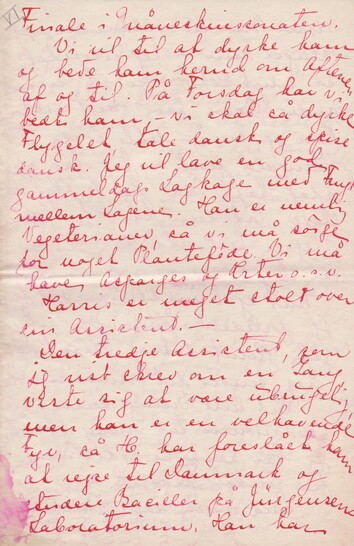 VI
Finale i Måneskinssonaten.
Vi vil til at dyrke ham
og bede ham herud om Aftenen
af og til. På Torsdag har vi
bedt ham, – vi skal så dyrke
Flyggelet, tale dansk og spise
dansk. Jeg vil lave en god,
gammeldags Lagkage med Frugt
mellem Lagene. Han er nemlig
Vegeterianer, så vi må sörge
for noget Plantefôde. Vi må
have Asparges og Ærter o.s.v.
Harris er meget stolt over
sin Assistent. –
Den tredje Assistent, som
jeg nst skrev om en Gang
viste sig at være ubrugelig,
men han er en velhavende
Fyr, så H. har foreslået ham
at rejse til Danmark og
studere Baciller på Jürgensens
Laboratorium. Han har